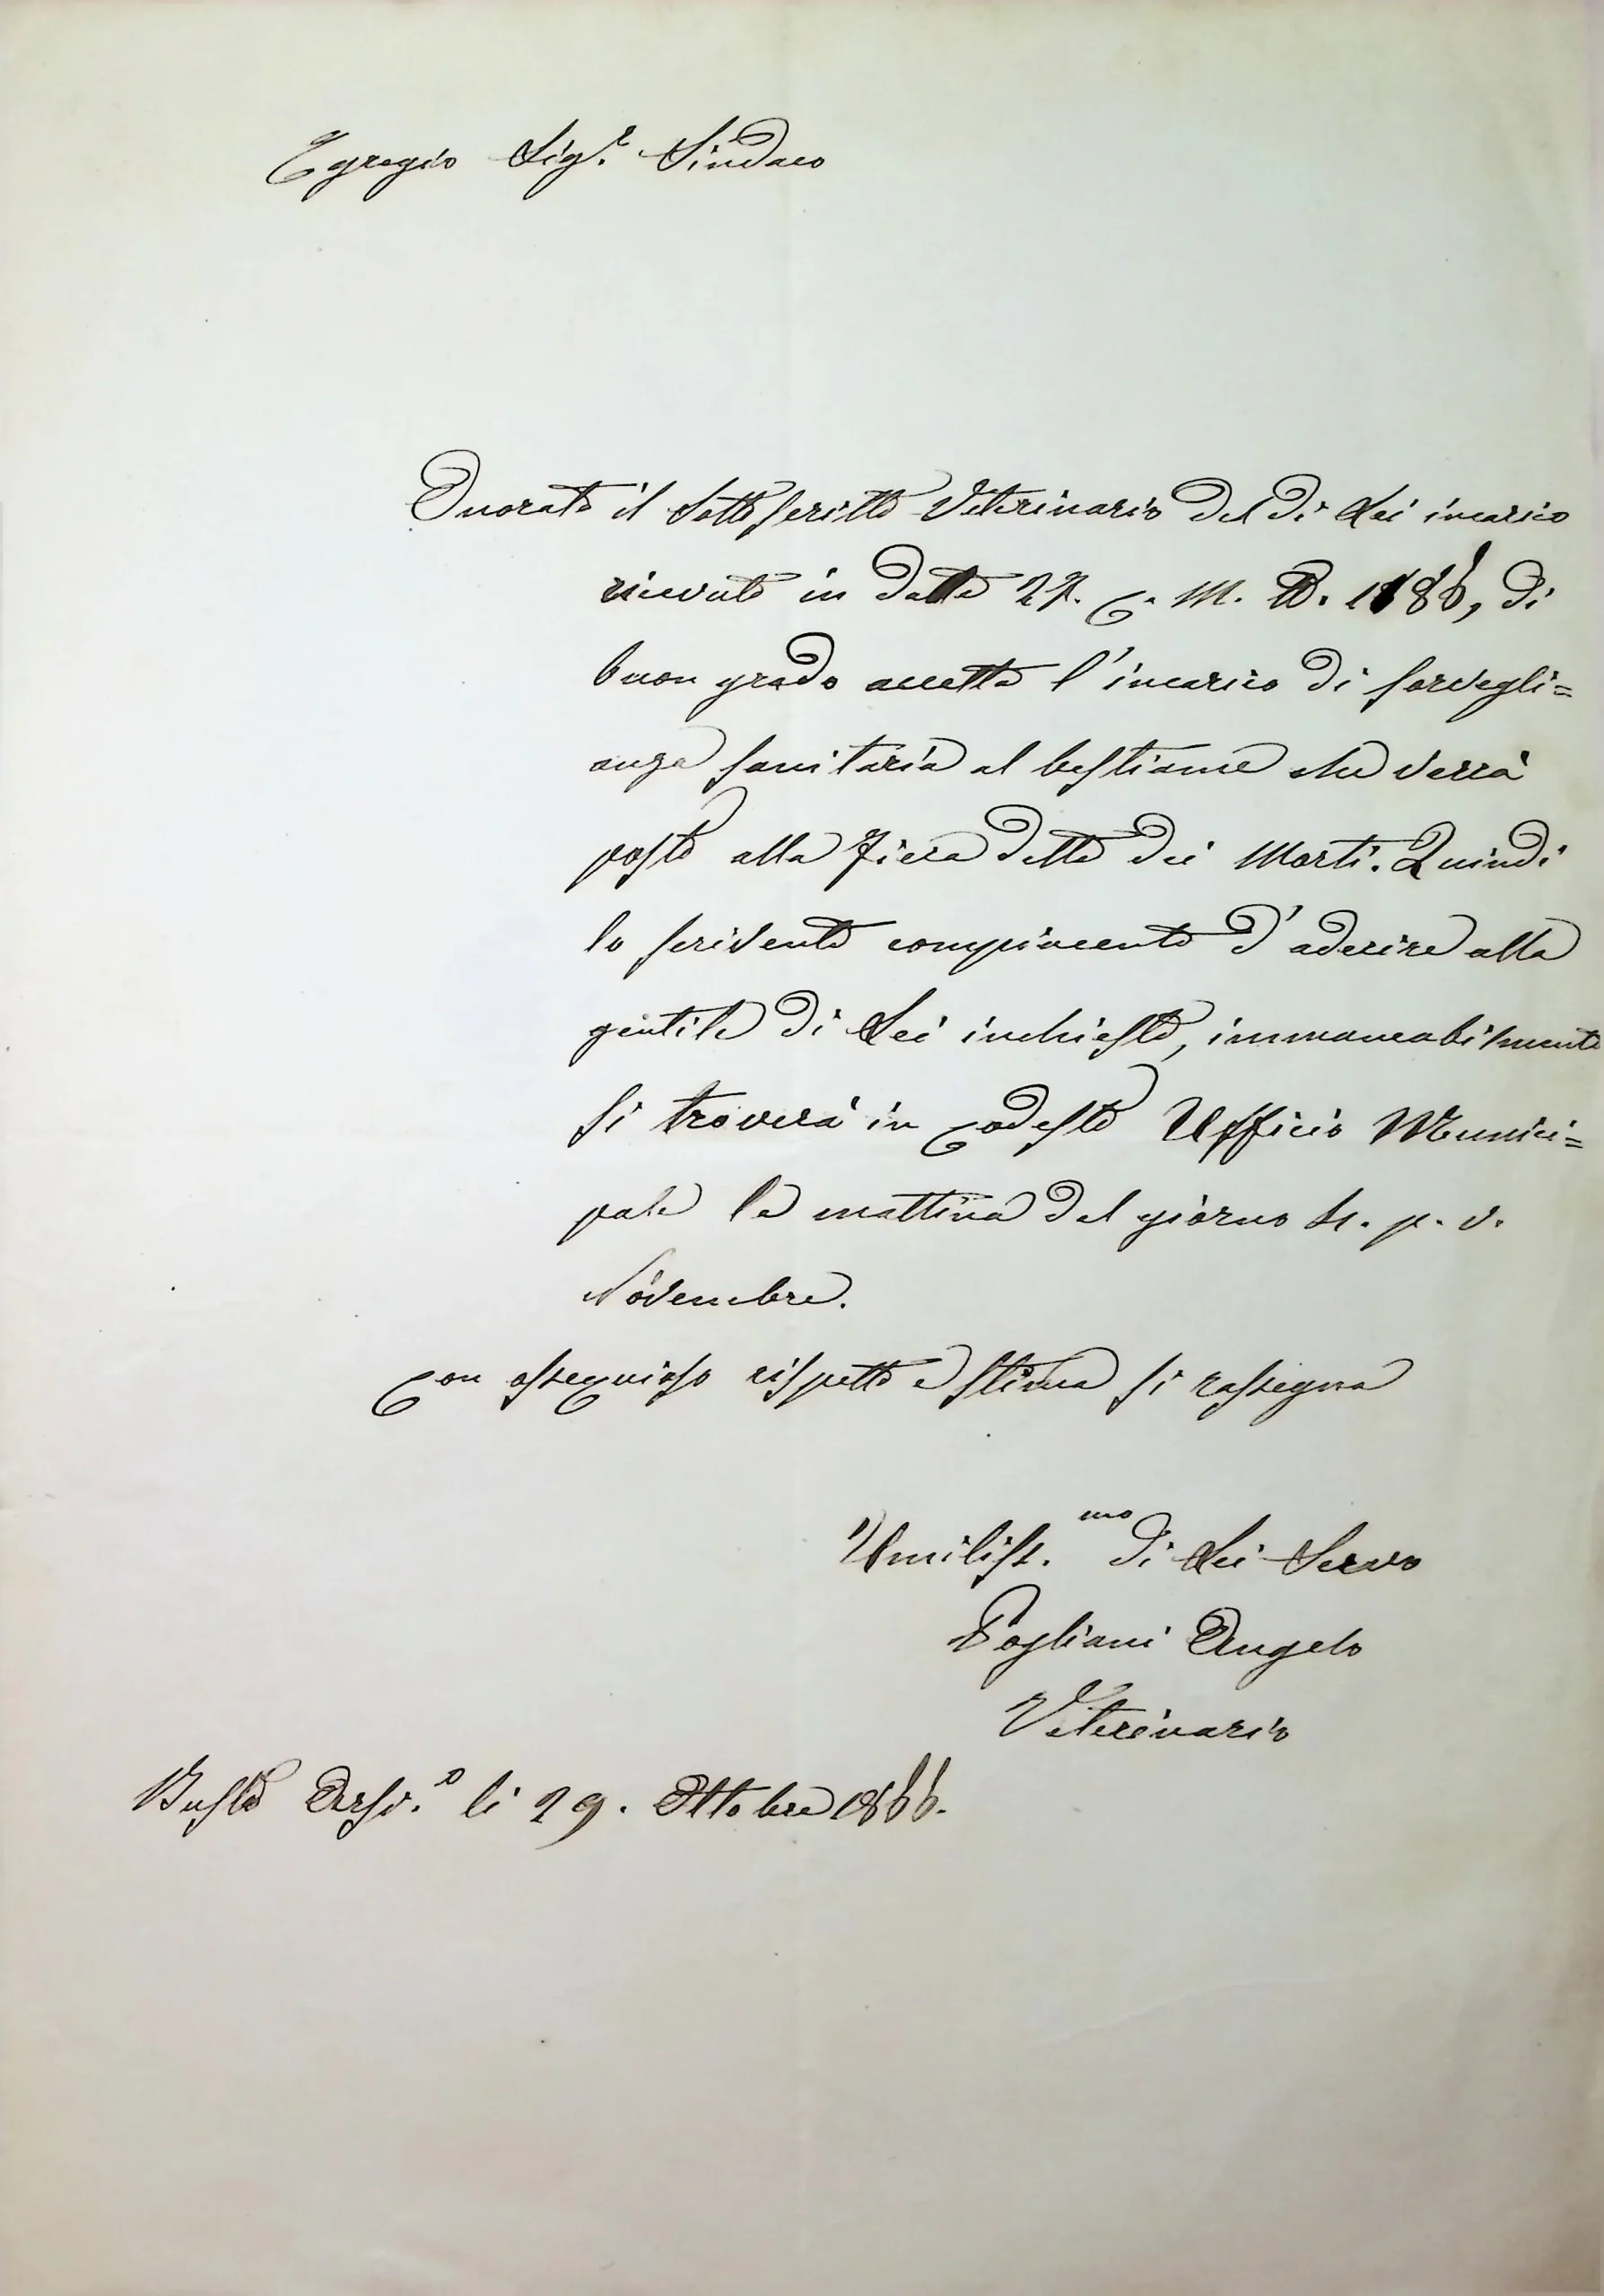 Egregio Sig.r Sindaco
Onorato il Sottoscritto Veterinario del di Lei incarico
ricevuto in data 27. C. M. 1866, di
buon grado accetta l'incarico di sorvegli=
anza sanitaria al bestiame che verrà
posto alla Fiera detta dei Morti. Quindi
lo scrivente compiacente d'aderire alla
gentile di Lei inchiesta, immancabilmente
si troverà in Codesto Ufficio Munici=
pale la mattina del giorno p. v.
Novembre.
Con ossequioso rispetto e stima si rassegna
Umilis.mo di Lei Servo
Pogliani Angelo
Veterinario
Busto Arsi.o li 29. Ottobre 1866.